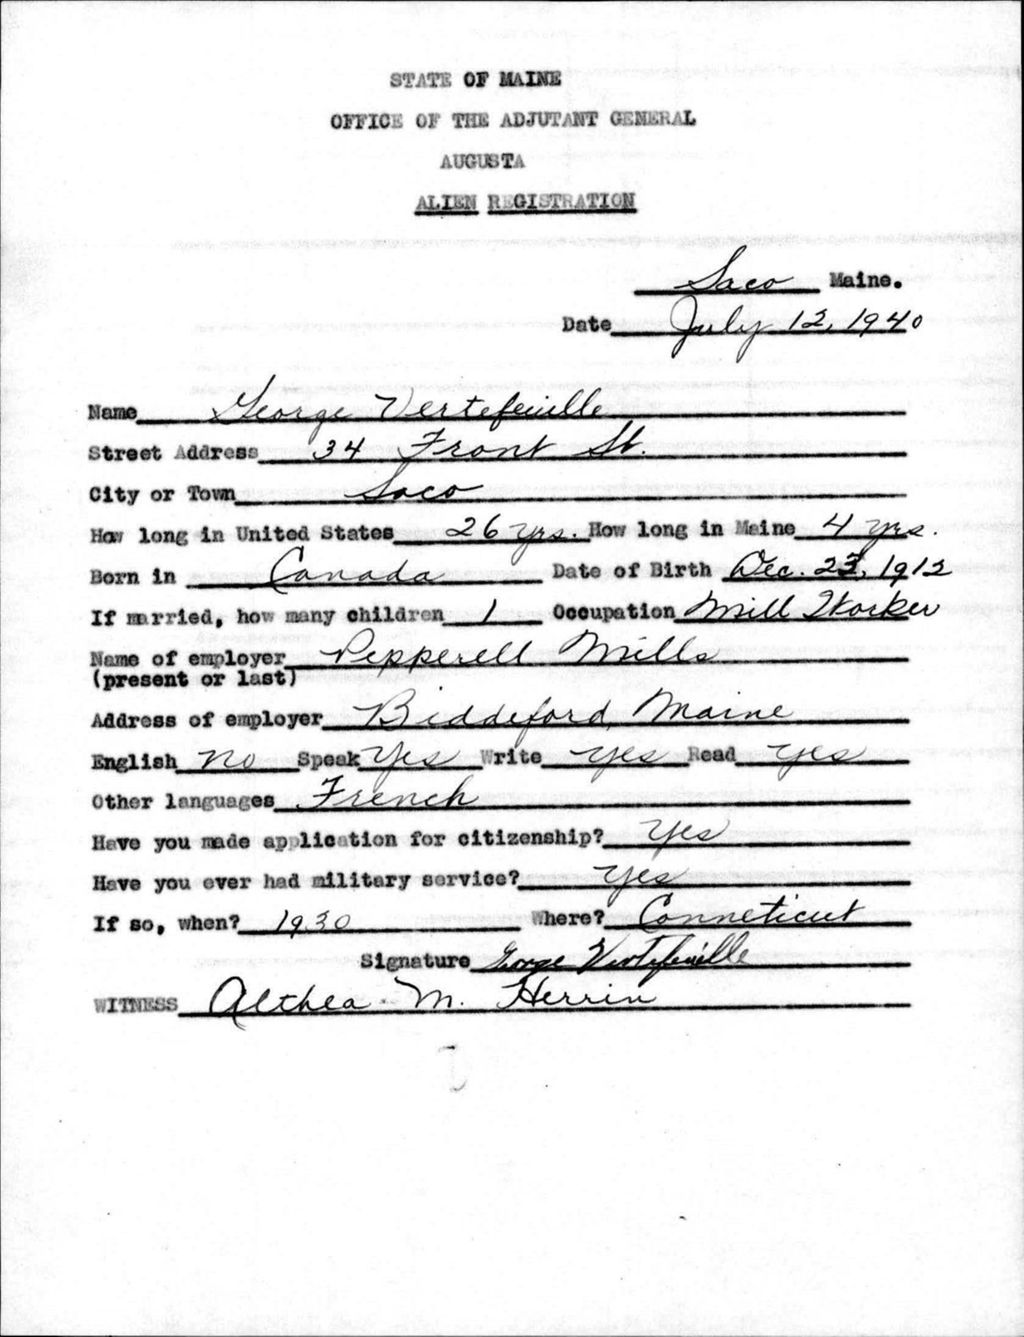 STATE OF MAINE
OFFICE OF THE ADJUTANT GENERAL
AUGUSTA
ALIEN REGISTRATION
Saco Maine.
Date July 12, 1940
Name George Vertefeuille
Street Address 34 Front St.
City or Town Saco
How long in United States 26 yrs. How long in Maine 4 yrs.
Born in Canada Date of Birth Dec. 23, 1912
If married, how many children 1 Occupation Mill Worker
Name of employer Pepperell Mills
(present or last)
Address of employer Biddeford, Maine
English no Speak Yes Write yes Read yes
Other languages French
Have you made application for citizenship? Yes
Have you ever had military service? Yes
If so, when? 1930 Where? Conneticut
Signature George Vertefeuille
WITNESS Althea M. Herrin